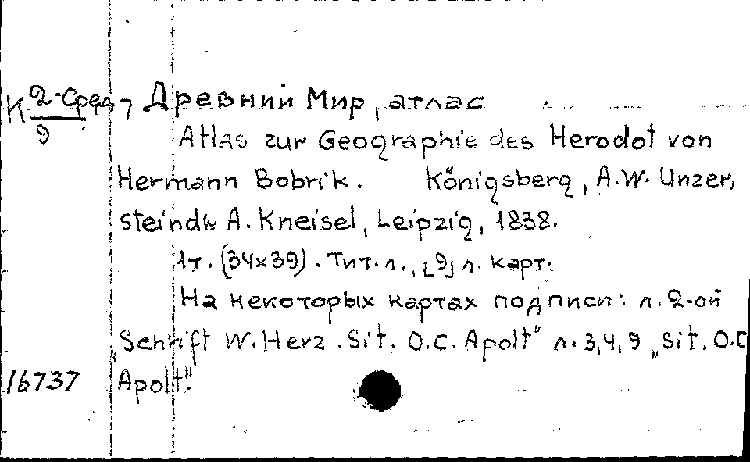 К 2-Сред-7 Древний Мир, атлас
9
Atlas zur Geographie des Herodot von
Hermann Bobrik. Königsberg, A.W. Unzer,
steindr. A. Kneisel, Leipzig, 1838.
1т. (34x39). Тит. л., [9] л. карт.
На некоторых картах подписи: л. 2-ой
„Schrift W. Herz. Sit. O.C. Apolt" л. 3,4,9 „Sit. O.C
16737 Apolt".